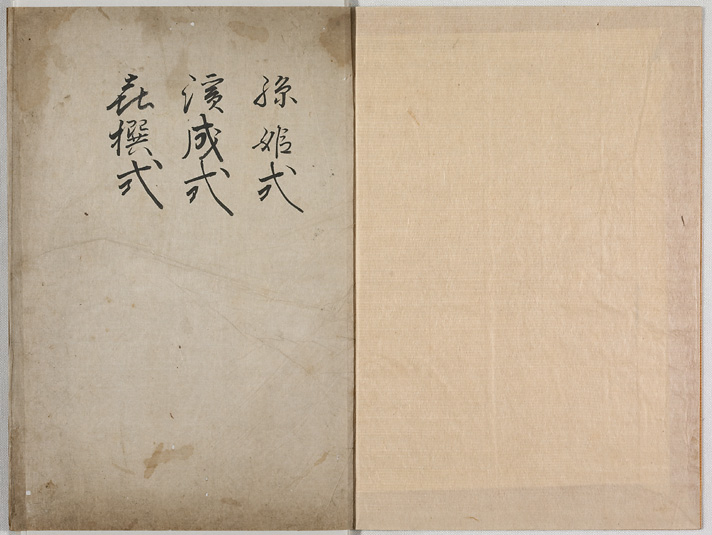 孫姫式
濱成式
喜撰式